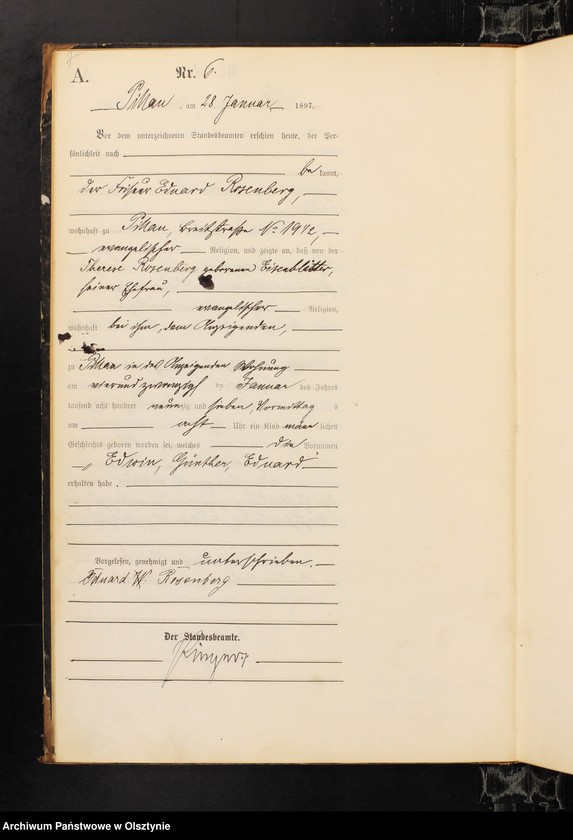 A.
Nr. 6.
Pillau, am 28. Januar 1897.
Vor dem unterzeichneten Standesbeamten erschien heute, der Per-
sönlichkeit nach
be kannt,
der Friseur Eduard Rosenberg,
wohnhaft zu Pillau, Breitstraße No
evangelischer Religion, und zeigte an, daß von der
Therese Rosenberg geborenen Eisenblätter,
seiner Ehefrau,
evangelischer Religion,
wohnhaft bei ihm, dem Anzeigenden,
zu Pillau in des Anzeigenden Wohnung
am vierundzwanzigsten Januar des Jahres
tausend acht hundert neunzig und sieben, Vormittag s
um acht Uhr ein Kind männ lichen
Geschlechts geboren worden sei, welches die Vornamen
„Edwin, Günther, Eduard"
erhalten habe.
Vorgelesen, genehmigt und unterschrieben.
Eduard W. Rosenberg
Der Standesbeamte.
Archiwum Państwowe w Olsztynie